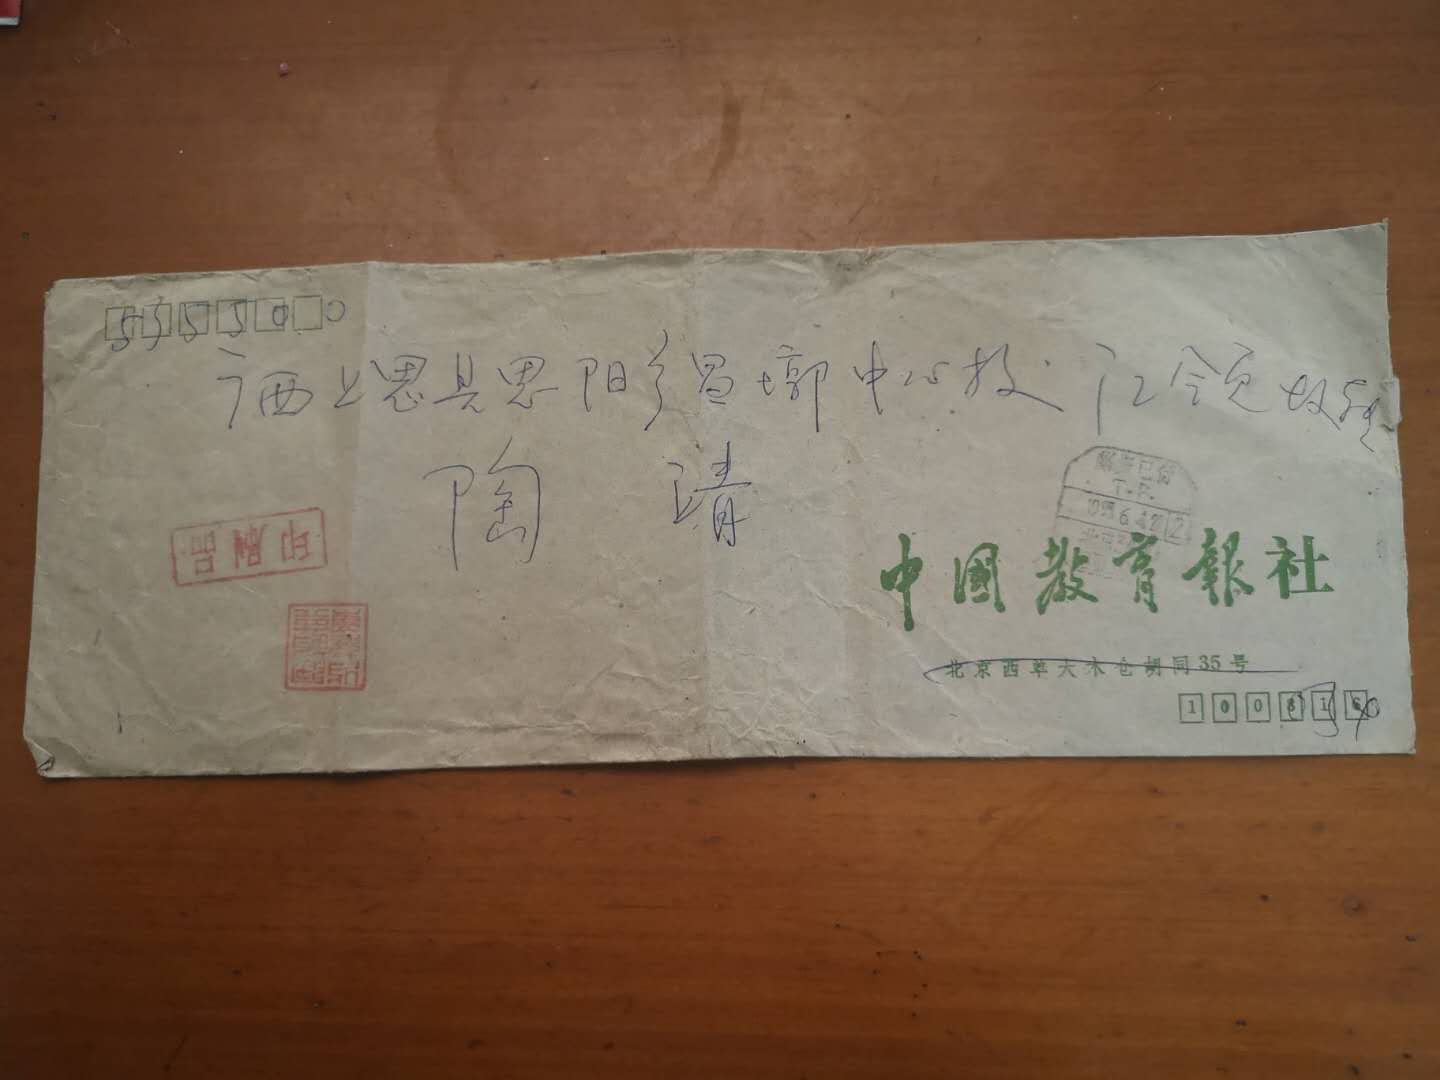 555500
广西上思县思阳乡昌墎中心校 江领
陶靖
邮资已付
T.P.
印刷品
中國教育報社
北京西单大木仓胡同35号
100816